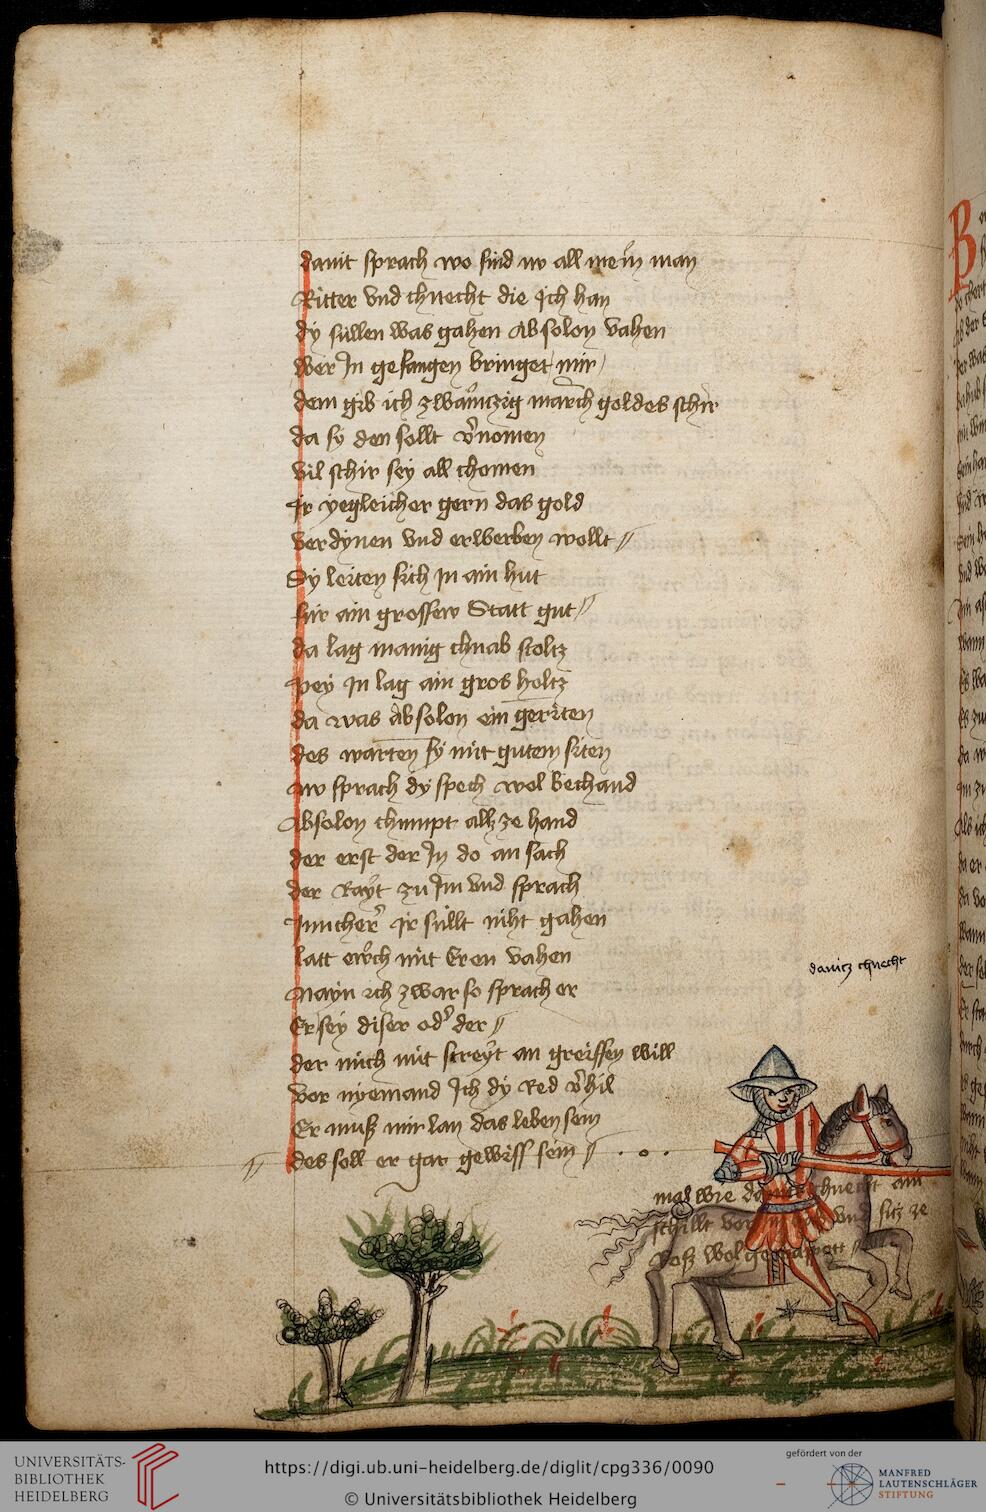 dauit sprach wo sind nw all mein man
Ritter vnd chnecht die Ich han
dy sullen was gahen Absolon vahen
wer In gefangen bringet mir
dem gib ich zwainczig march goldes schir
da sy den sollt v̄nomen
vil schir sey all chomen
Ir yegleicher gern das gold
verdynen vnd erwerben wollt //
Sy leiten sich In ain hut
fur ain grosser Statt gut //
da lag manig chnab stoltz
pey In lag ain gros holtz
da was Absolon ein geriten
des warten sy mit gutem siten
nw sprach dy spech wol bechand
Absolon chumpt allz ze hand
der erst der In do an sach
der Rayt zu Im vnd sprach
Juncher Ir sullt niht gahen
latt ewch mit Eren vahen
Nayn ich zwar so sprach er
Er sey diser oder der //
der mich mit streyt an greiffen will
vor nyemand Ich dy Red v̄hil
Er muß mir lan das leben sein
des soll er gar gewiss sein //
dauitz chnecht
mal wie chnecht ain
schillt vor vnd sitz ze
Roß wol
UNIVERSITÄTS-
BIBLIOTHEK
HEIDELBERG
https://digi.ub.uni-heidelberg.de/diglit/cpg336/0090
© Universitätsbibliothek Heidelberg
gefördert von der
MANFRED
LAUTENSCHLÄGER
STIFTUNG